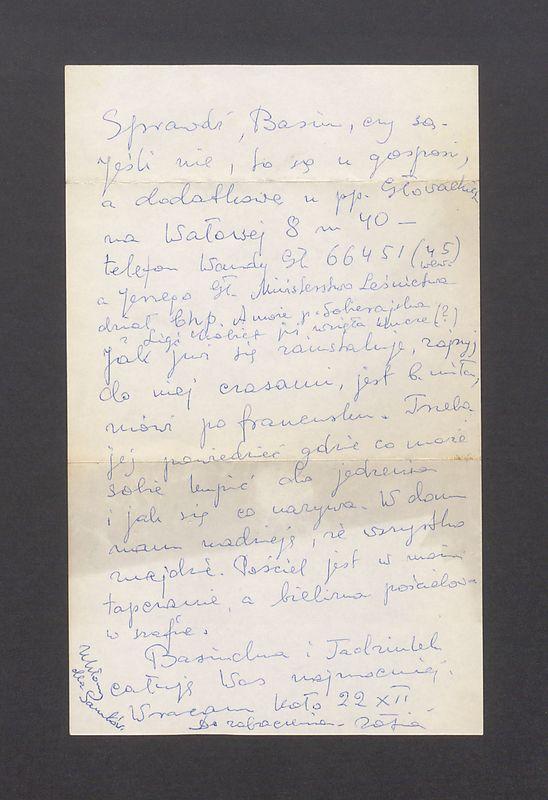 Sprawdź, Basiu, czy są.
Jeśli nie, to są u gosposi,
a dodatkowe u pp. Głowackich
na Wałowej 8 m 40 –
telefon Wandy Gł. 66451 (45)
wew.
a Jerzego Gł. Ministerstwo Leśnictwa
dział A może p. Sobierajska
z Ligi Kobiet już wzięła klucze (?)
Jak już się zainstaluje, zajrzyj
do niej czasami, jest b. miła,
mówi po francusku. Trzeba
jej powiedzieć gdzie co może
sobie kupić do jedzenia
i jak się co nazywa. W domu
mam nadzieję, że wszystko
znajdzie. Pościel jest w moim
tapczanie, a bielizna pościelowa
w szafie.
Basiuchna i Tadziulek
całuję Was najmocniej.
Wracam koło 22 XII
Do zobaczenia – Zosia
Ukłony
dla